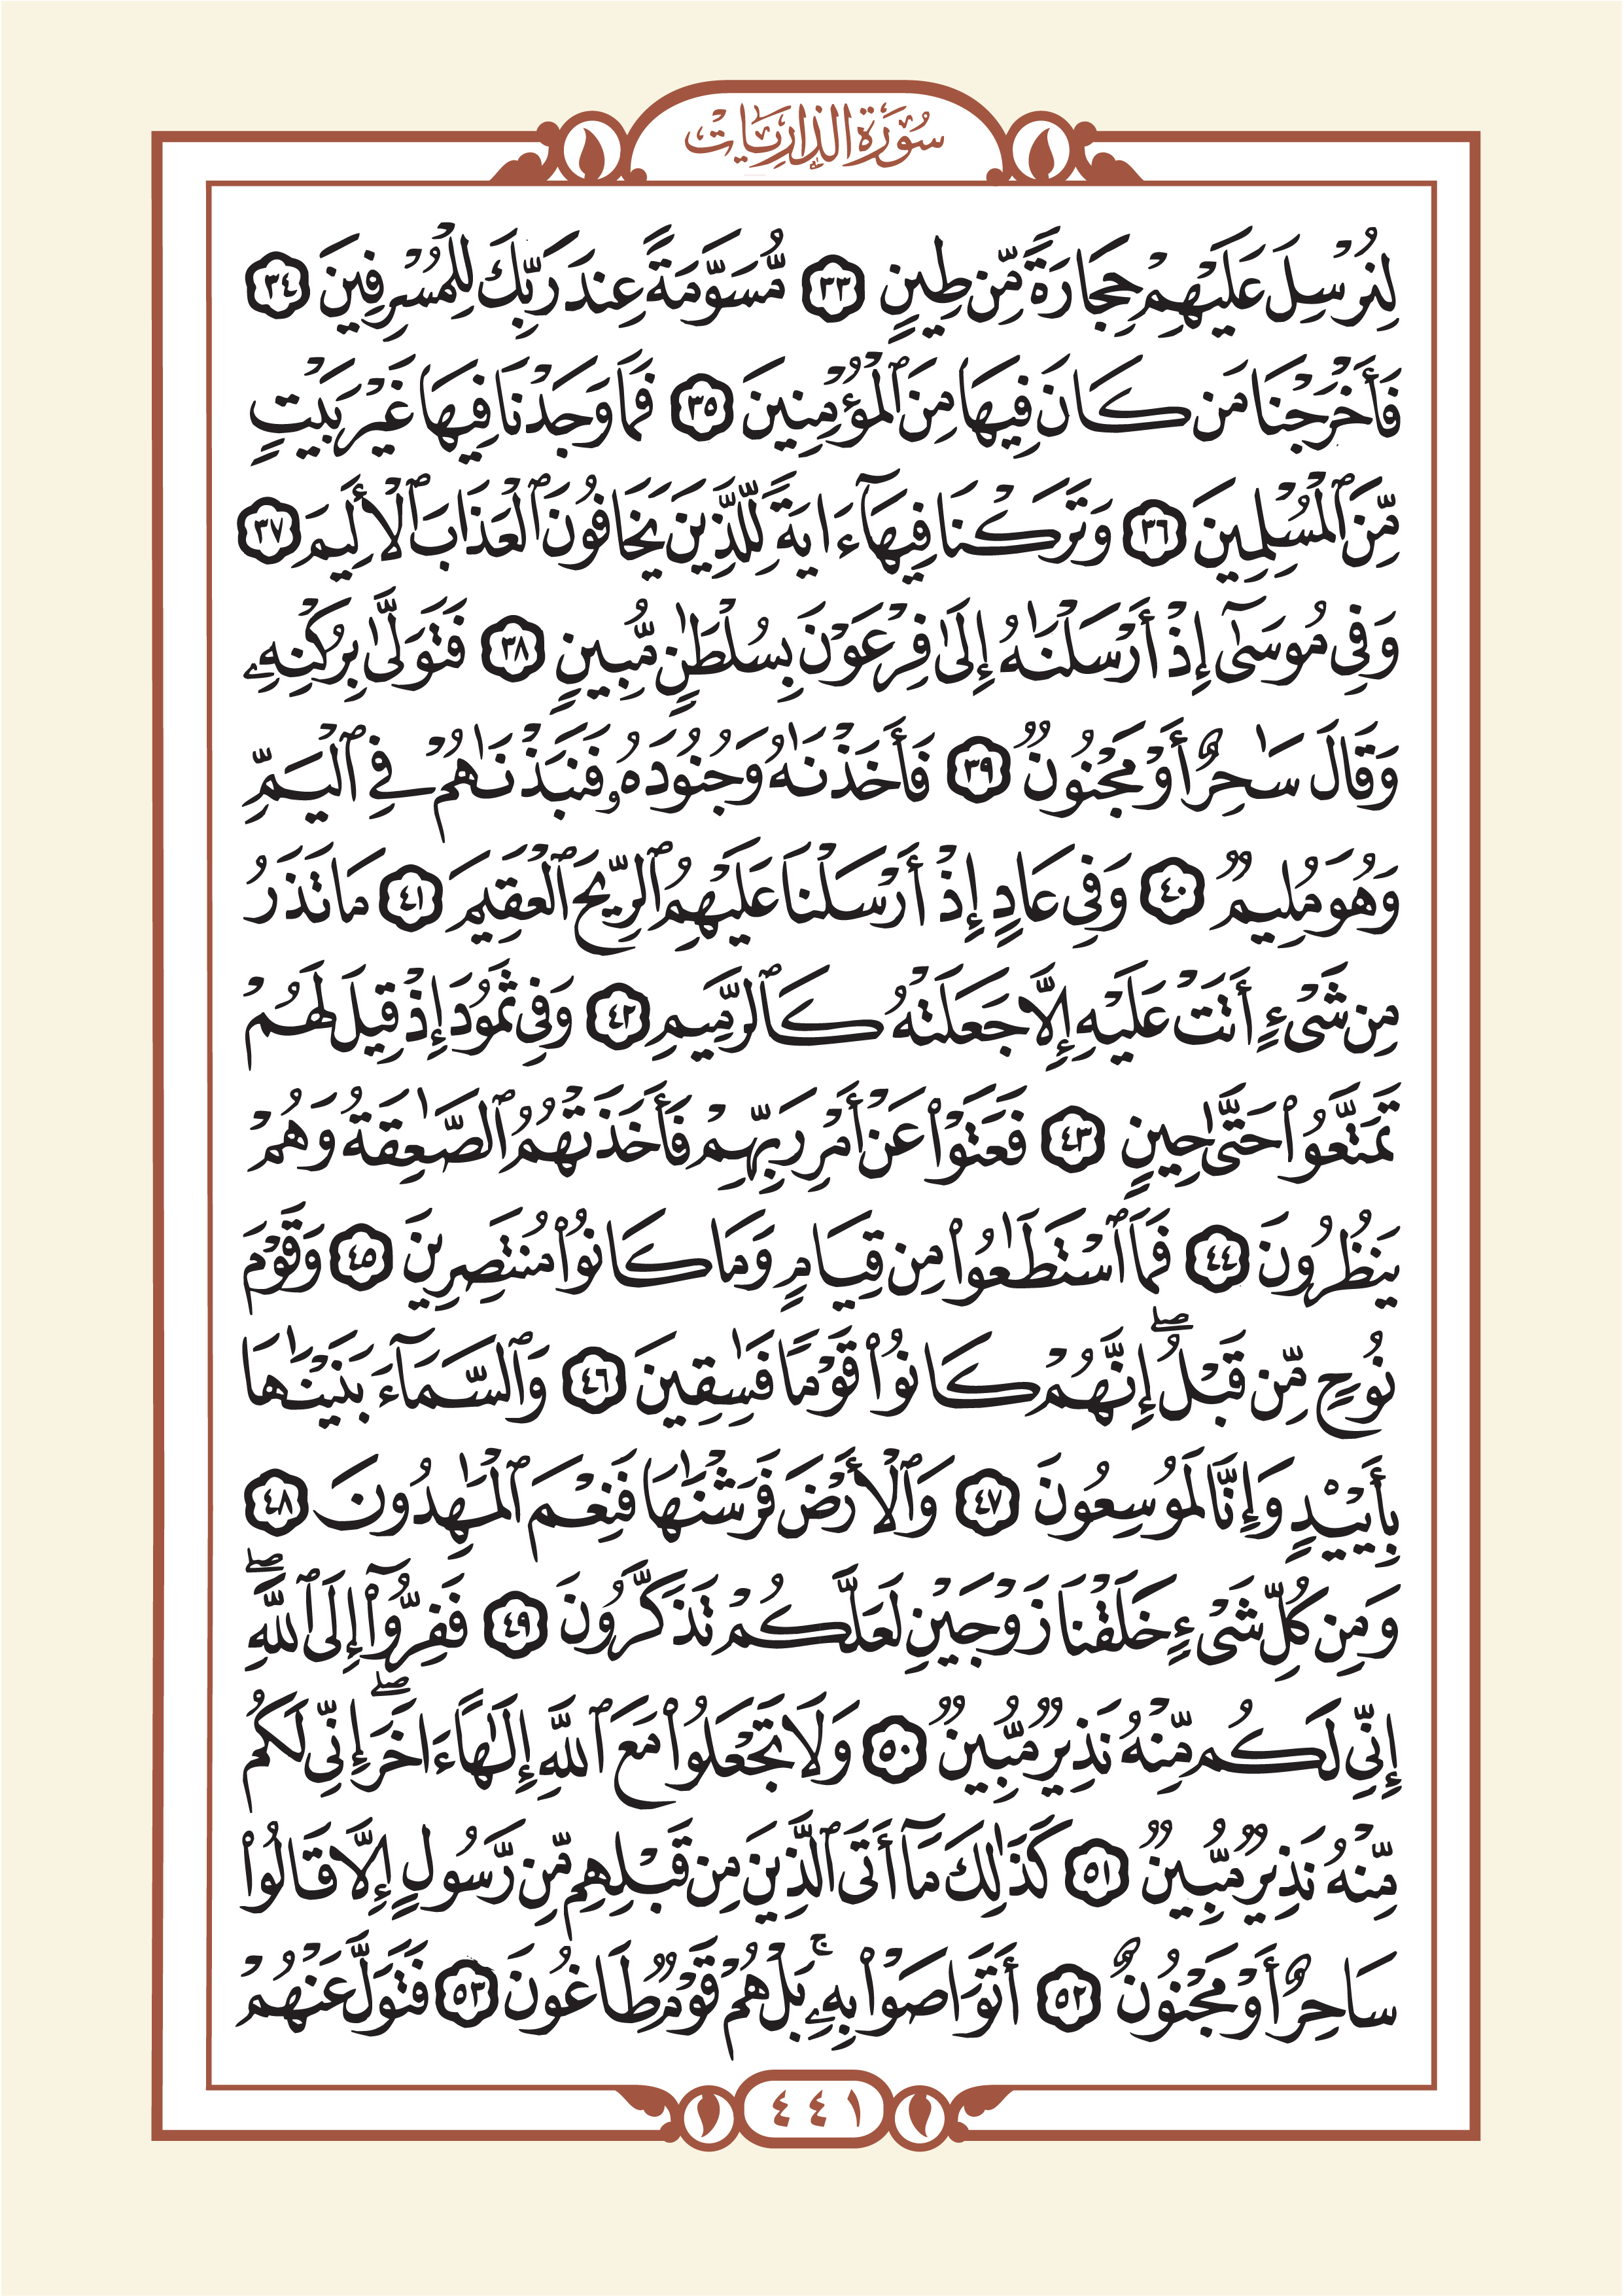 سُورَةُ الذَّارِيَاتِ
لِنُرْسِلَ عَلَيْهِمْ حِجَارَةً مِّن طِينٍ ٣٣ مُّسَوَّمَةً عِندَ رَبِّكَ لِلْمُسْرِفِينَ ٣٤
فَأَخْرَجْنَا مَن كَانَ فِيهَا مِنَ ٱلْمُؤْمِنِينَ ٣٥ فَمَا وَجَدْنَا فِيهَا غَيْرَ بَيْتٍ
مِّنَ ٱلْمُسْلِمِينَ ٣٦ وَتَرَكْنَا فِيهَآ ءَايَةً لِّلَّذِينَ يَخَافُونَ ٱلْعَذَابَ ٱلْأَلِيمَ ٣٧
وَفِى مُوسَىٰٓ إِذْ أَرْسَلْنَٰهُ إِلَىٰ فِرْعَوْنَ بِسُلْطَٰنٍ مُّبِينٍ ٣٨ فَتَوَلَّىٰ بِرُكْنِهِۦ
وَقَالَ سَٰحِرٌ أَوْ مَجْنُونٌ ٣٩ فَأَخَذْنَٰهُ وَجُنُودَهُۥ فَنَبَذْنَٰهُمْ فِى ٱلْيَمِّ
وَهُوَ مُلِيمٌ ٤٠ وَفِى عَادٍ إِذْ أَرْسَلْنَا عَلَيْهِمُ ٱلرِّيحَ ٱلْعَقِيمَ ٤١ مَا تَذَرُ
مِن شَىْءٍ أَتَتْ عَلَيْهِ إِلَّا جَعَلَتْهُ كَٱلرَّمِيمِ ٤٢ وَفِى ثَمُودَ إِذْ قِيلَ لَهُمْ
تَمَتَّعُوا۟ حَتَّىٰ حِينٍ ٤٣ فَعَتَوْا۟ عَنْ أَمْرِ رَبِّهِمْ فَأَخَذَتْهُمُ ٱلصَّٰعِقَةُ وَهُمْ
يَنظُرُونَ ٤٤ فَمَا ٱسْتَطَٰعُوا۟ مِن قِيَامٍ وَمَا كَانُوا۟ مُنتَصِرِينَ ٤٥ وَقَوْمَ
نُوحٍ مِّن قَبْلُ ۖ إِنَّهُمْ كَانُوا۟ قَوْمًا فَٰسِقِينَ ٤٦ وَٱلسَّمَآءَ بَنَيْنَٰهَا
بِأَيْي۟دٍ وَإِنَّا لَمُوسِعُونَ ٤٧ وَٱلْأَرْضَ فَرَشْنَٰهَا فَنِعْمَ ٱلْمَٰهِدُونَ ٤٨
وَمِن كُلِّ شَىْءٍ خَلَقْنَا زَوْجَيْنِ لَعَلَّكُمْ تَذَكَّرُونَ ٤٩ فَفِرُّوٓا۟ إِلَى ٱللَّهِ ۖ
إِنِّى لَكُم مِّنْهُ نَذِيرٌ مُّبِينٌ ٥٠ وَلَا تَجْعَلُوا۟ مَعَ ٱللَّهِ إِلَٰهًا ءَاخَرَ ۖ إِنِّى لَكُم
مِّنْهُ نَذِيرٌ مُّبِينٌ ٥١ كَذَٰلِكَ مَآ أَتَى ٱلَّذِينَ مِن قَبْلِهِم مِّن رَّسُولٍ إِلَّا قَالُوا۟
سَاحِرٌ أَوْ مَجْنُونٌ ٥٢ أَتَوَاصَوْا۟ بِهِۦ ۚ بَلْ هُمْ قَوْمٌ طَاغُونَ ٥٣ فَتَوَلَّ عَنْهُمْ
٤٤١